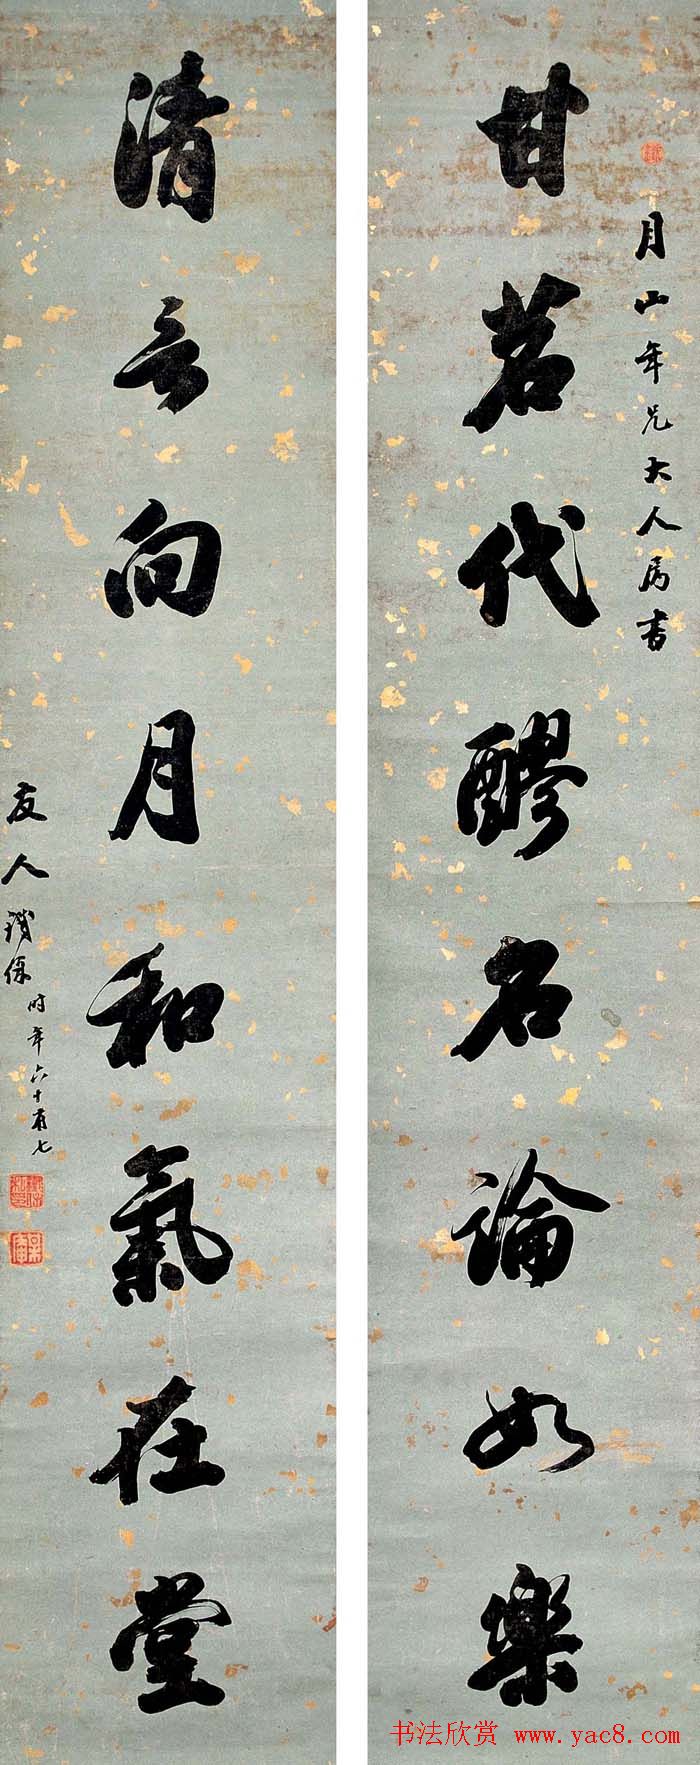 甘茗代醪名論如樂
月山年兄大人属書
清言向月和氣在堂
友人鐵保時年六十有七
书法欣赏 www.yac8.com